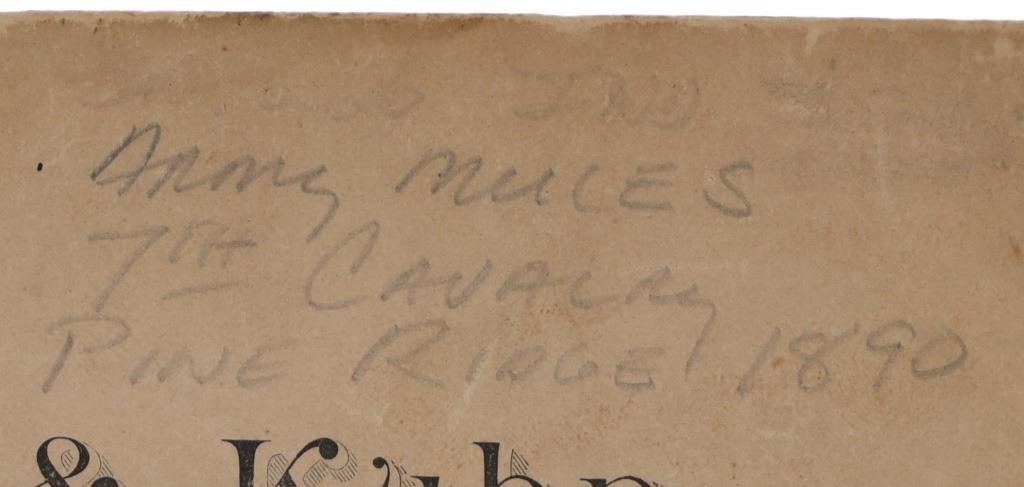 Army MULES
7TH CAVALRy
PINE RIDGE 1890
& Kuhn